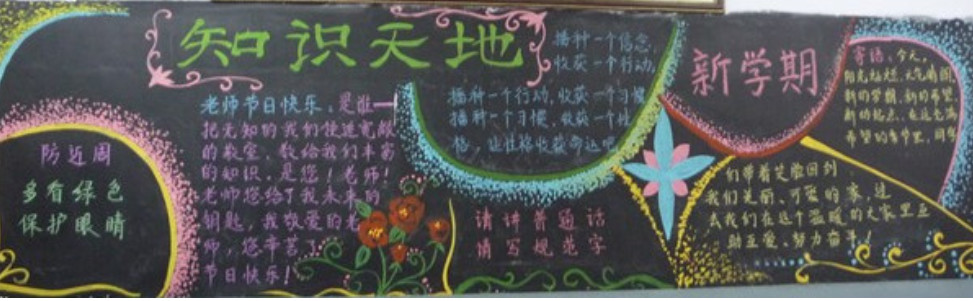 知识天地
防近周
多看绿色
保护眼睛
老师节日快乐,是谁一
把无知的我们领进宽敞
的教室,教给我们丰富
的知识,是您!老师!
老师您给了我未来的
钥匙,我敬爱的老
师,您辛苦了
节日快乐!
播种一个信念,
收获一个行动,
播种一个行动,收获一个习惯
播种一个习惯,收获一个性
格,让性格收获命运吧
请讲普通话
请写规范字
新学期
寄语:今天,
阳光灿烂,天气晴朗
新的学期,新的希望,
新的起点,在这充满
希望的春节里,同学
们带着笑脸回到
我们美丽、可爱的家,过
去我们在这个温暖的大家里互
助互爱、努力奋斗!